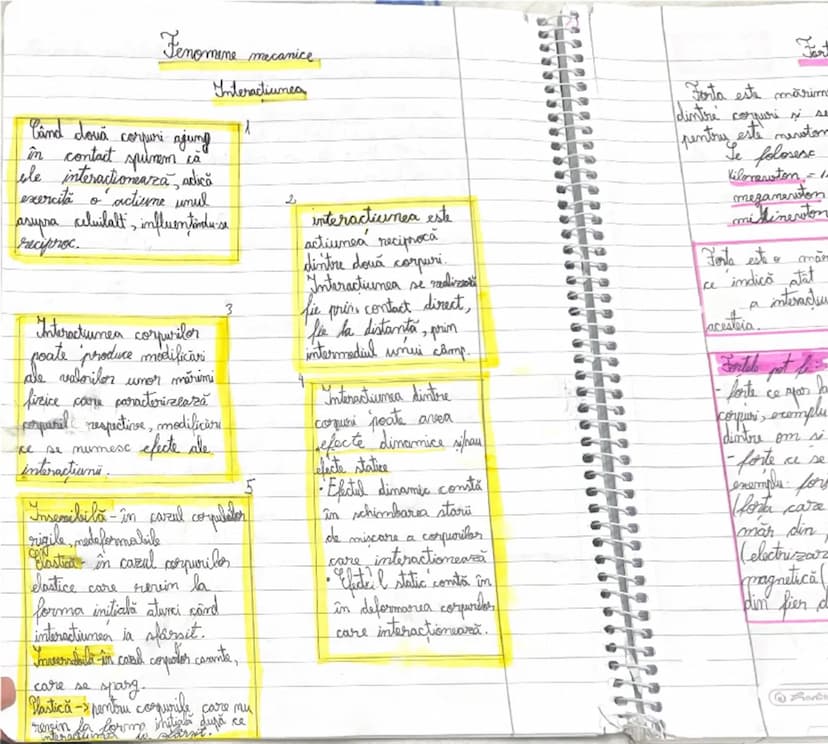 Fenomene mecanice
Interacțiunea
1
Când două corpuri ajung
în contact spunem că
ele interacționează, adică
exercită o acțiune unul
asupra celuilalt, influențându-se
reciproc.
2
interacțiunea este
acțiunea reciprocă
dintre două corpuri.
Interacțiunea se realizează
fie prin contact direct,
fie la distanță, prin
intermediul unui câmp.
3
Interacțiunea corpurilor
poate produce modificări
ale valorilor unor mărimi
fizice care caracterizează
corpurile respective, modificări
ce se numesc efecte ale
interacțiunii.
4
Interacțiunea dintre
corpuri poate avea
efecte dinamice și/sau
efecte statice
• Efectul dinamic constă
în schimbarea stării
de mișcare a corpurilor
care interacționează
• Efectul static constă în
în deformarea corpurilor
care interacționează.
5
Insensibilă - în cazul corpurilor
rigide, nedeformabile
Elastică - în cazul corpurilor
elastice care revin la
forma inițială atunci când
interacțiunea ia sfârșit.
în cazul corpurilor casante,
care se sparg.
Plastică -> pentru corpurile care nu
revin la forma inițială după ce
interacțiunea ia sfârșit.
Forța este mărim
dintre corpuri și se
pentru este newton
Se folosesc
Kilonewton = 1
meganewton
milinewton
Forța este o măr
ce indică atât
a interacțiu
acesteia.
Forțele pot fi:
- forțe ce apar la
corpuri, exemplu
dintre om și
- forțe ce se
exemplu: for
(forța care
măr din
(electrizar
magnetică(
din fier d